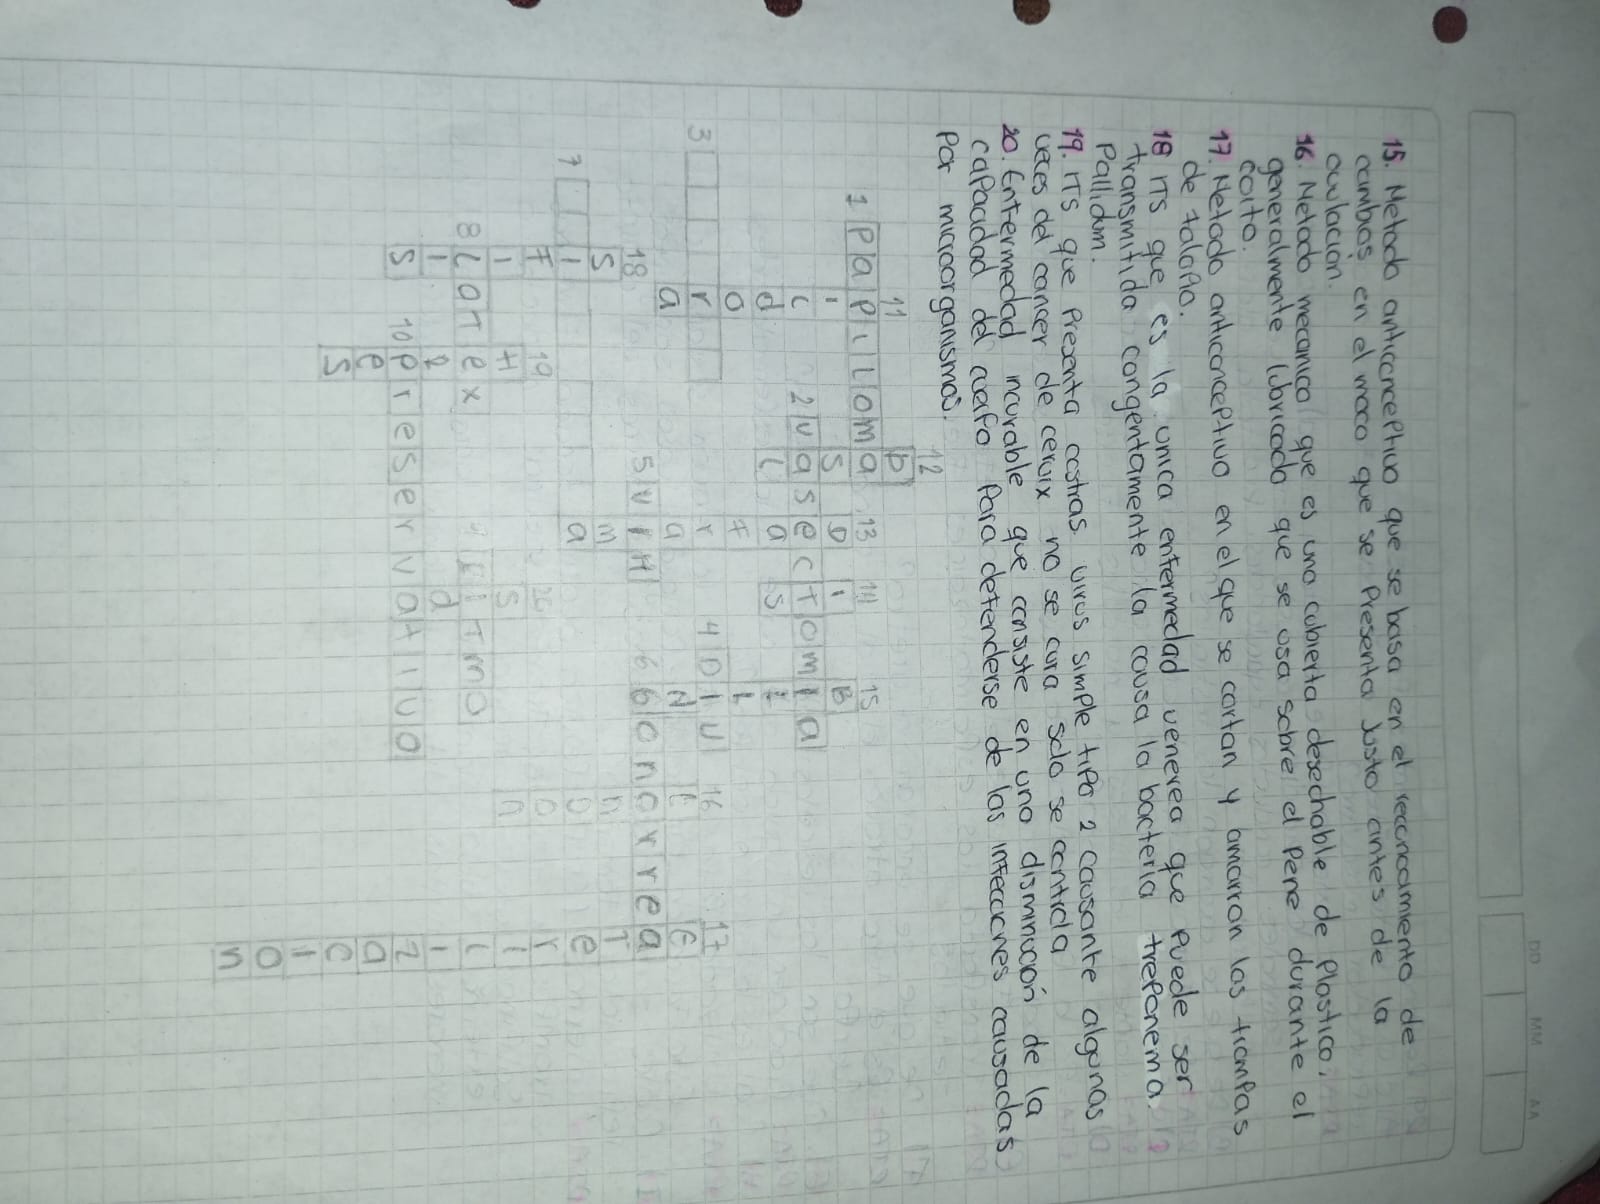 DD MM AA
15. Metodo anticonceptivo que se basa en el reconocimiento de
cambios en el moco que se presenta justo antes de la
ovulacion.
16. Metodo mecanico que es una cubierta desechable de plastico,
generalmente lubricado que se usa sobre el pene durante el
coito.
17. Metodo anticonceptivo en el que se cortan y amarran las trompas
de falopio.
18 ITS que es la unica enfermedad venerea que puede ser
transmitida congentamente la causa la bacteria treponema
Pallidum.
19. ITS que presenta costras virus simple tipo 2 causante algunas
veces del cancer de cervix no se cura solo se controla
20. Enfermedad incurable que consiste en una disminución de la
capacidad del cuerpo para defenderse de las infecciones causadas
por microorganismos.
12
11 b 13 14 15
1 Papiloma
2 Vasectomia
3
4 DIU 16 17
5 VIH 6 Gonorrea
18
7
19
8 Latex 9 Ritmo
10 Preservativo